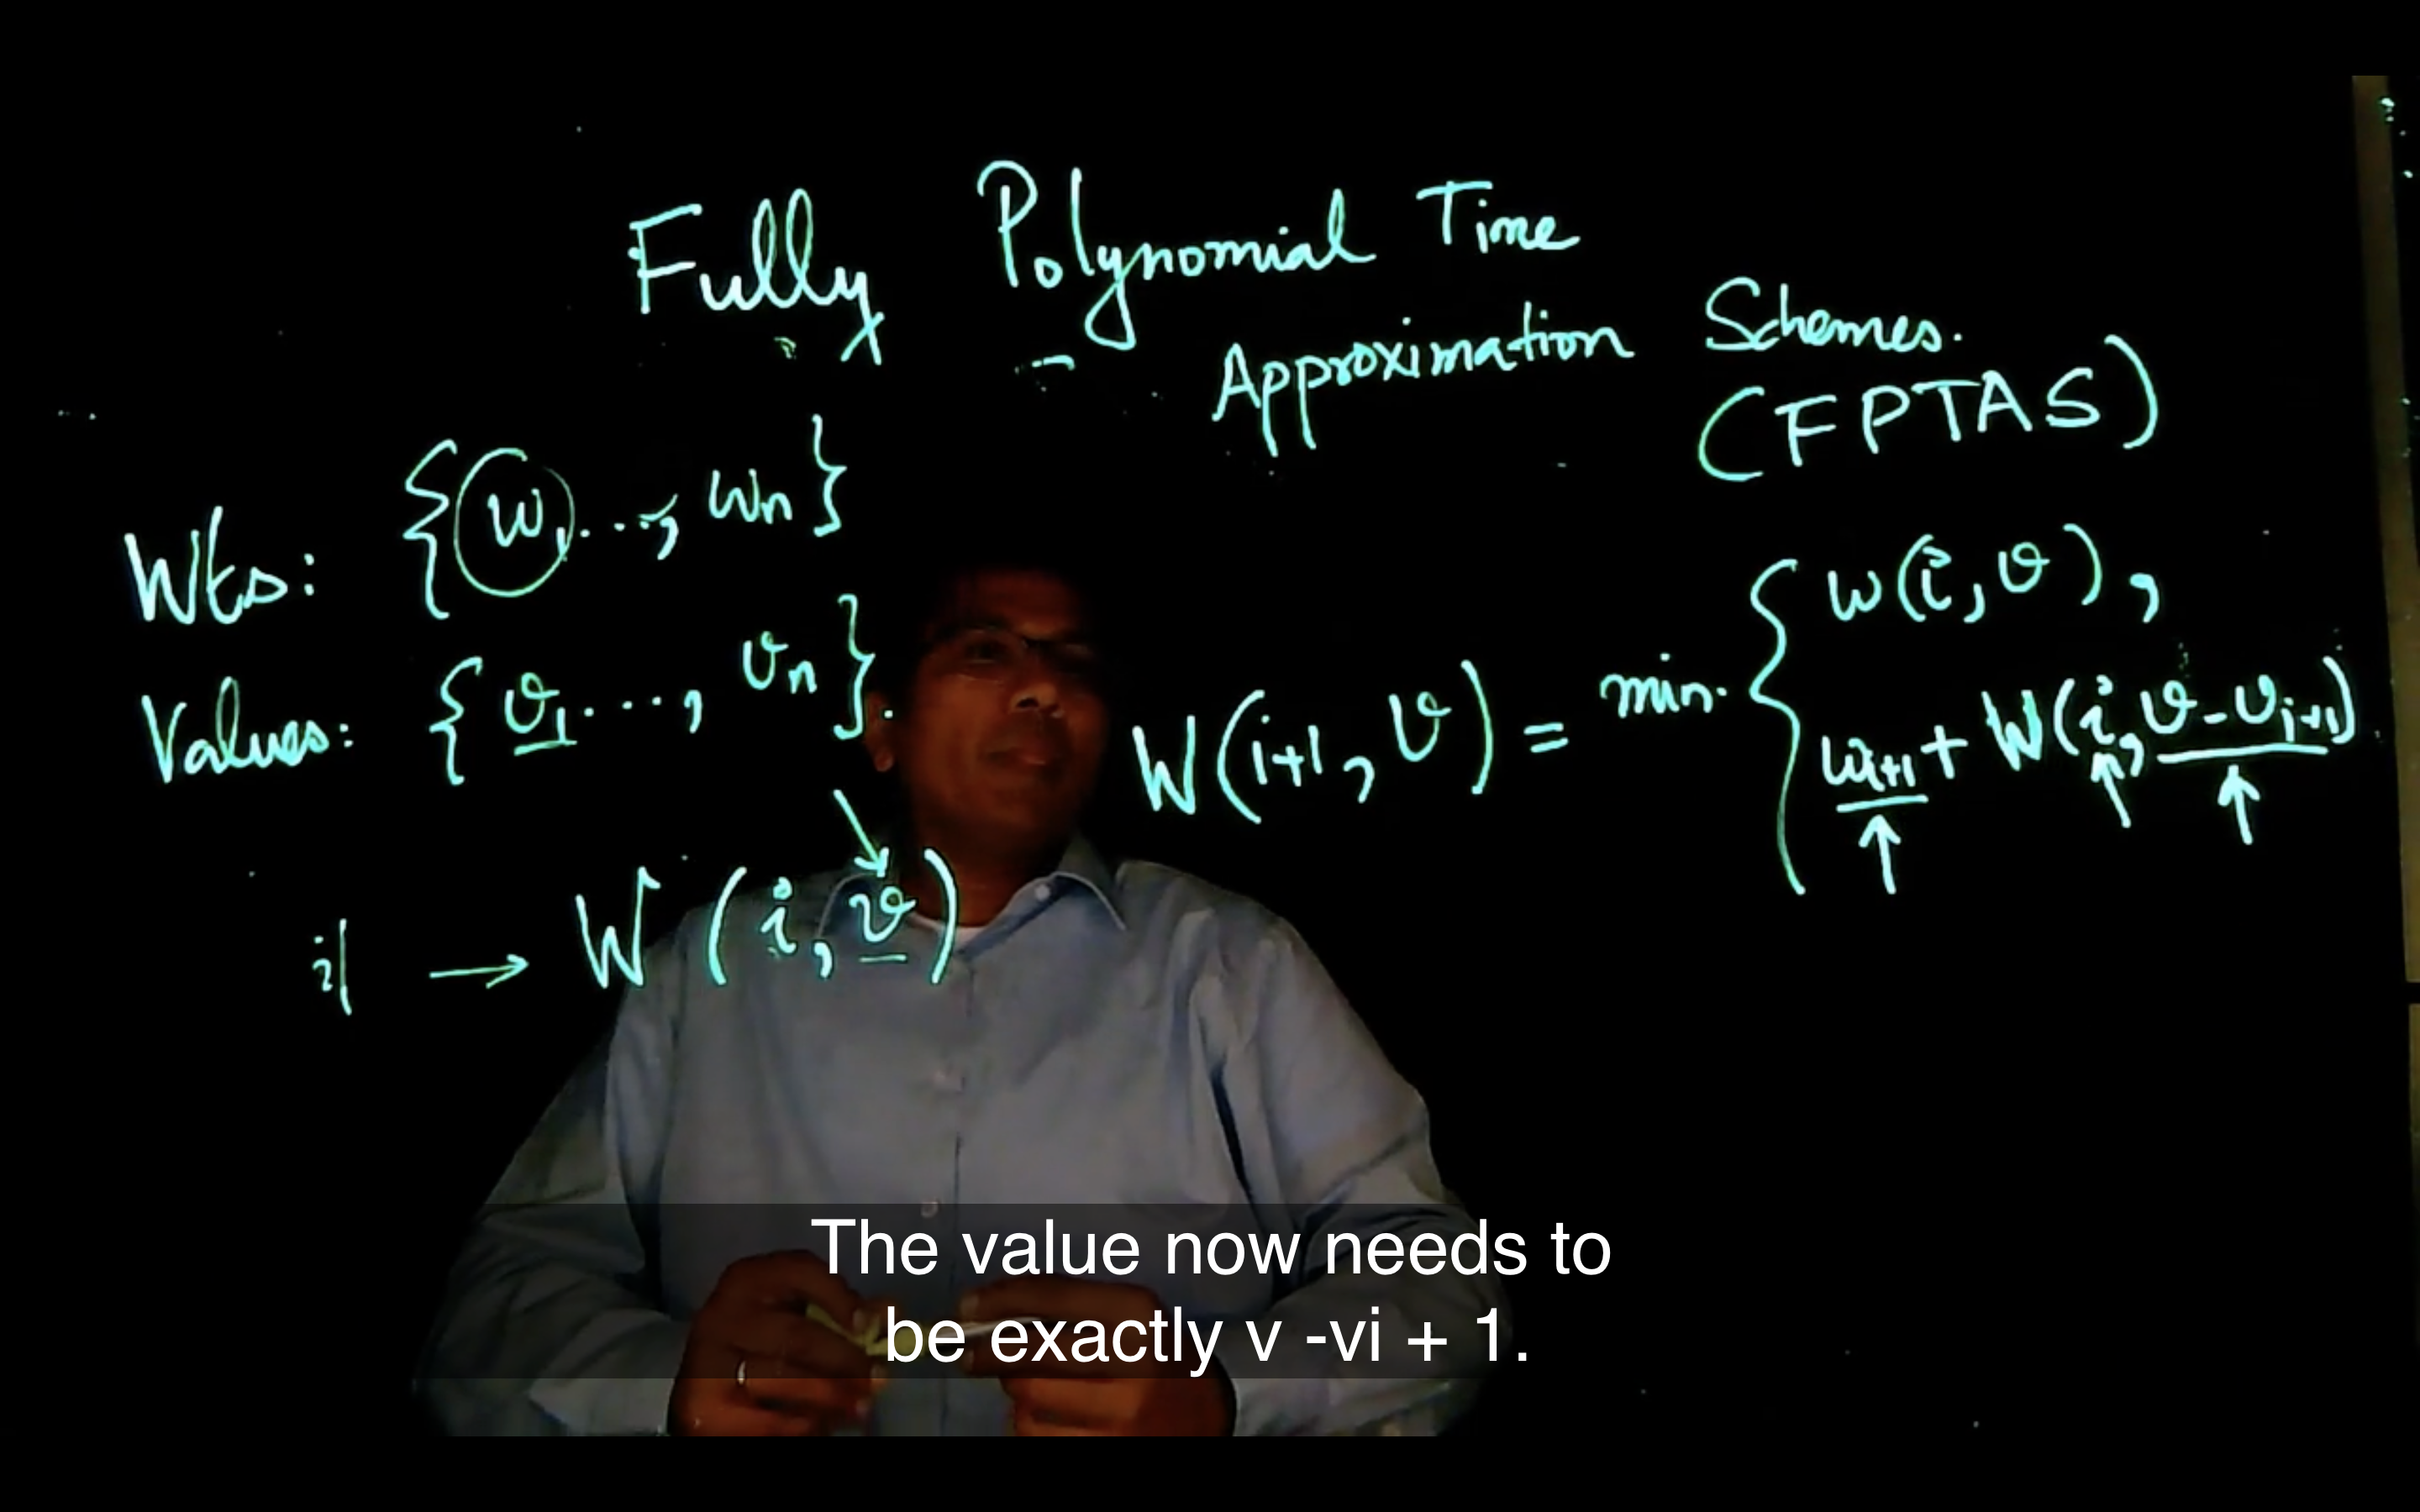 Fully Polynomial Time
Approximation Schemes.
(FPTAS)
Wts: {w₁..., wn}
Values: {v₁..., vn}.
i| → W(i, v)
W(i+1, v) = min. { w(i, v),
wᵢ₊₁ + W(i, v - vᵢ₊₁)
The value now needs to
be exactly v -vi + 1.